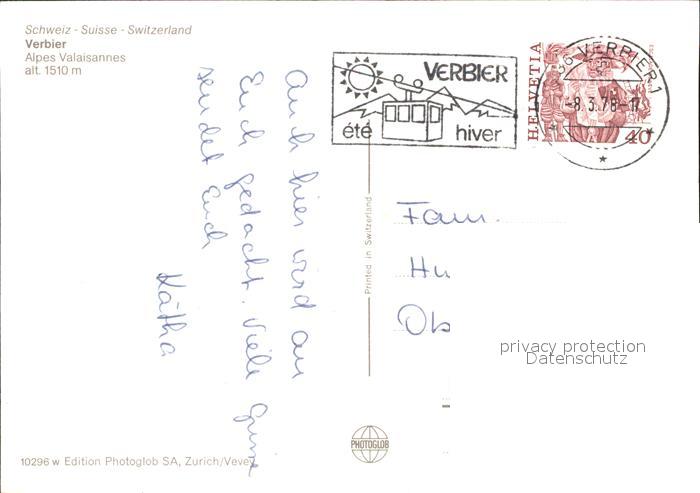 Schweiz - Suisse - Switzerland
Verbier
Alpes Valaisannes
alt. 1510 m
VERBIER
été hiver
HELVETIA
40
VERBIER 1
-8.3.78-17
Auch hier wird an
Euch gedacht. Viele Grüsse
sendet Euch
Kätha
Printed in Switzerland
Fam.
Hu
Ob
privacy protection
Datenschutz
PHOTOGLOB
10296 w Edition Photoglob SA, Zurich/Vevey